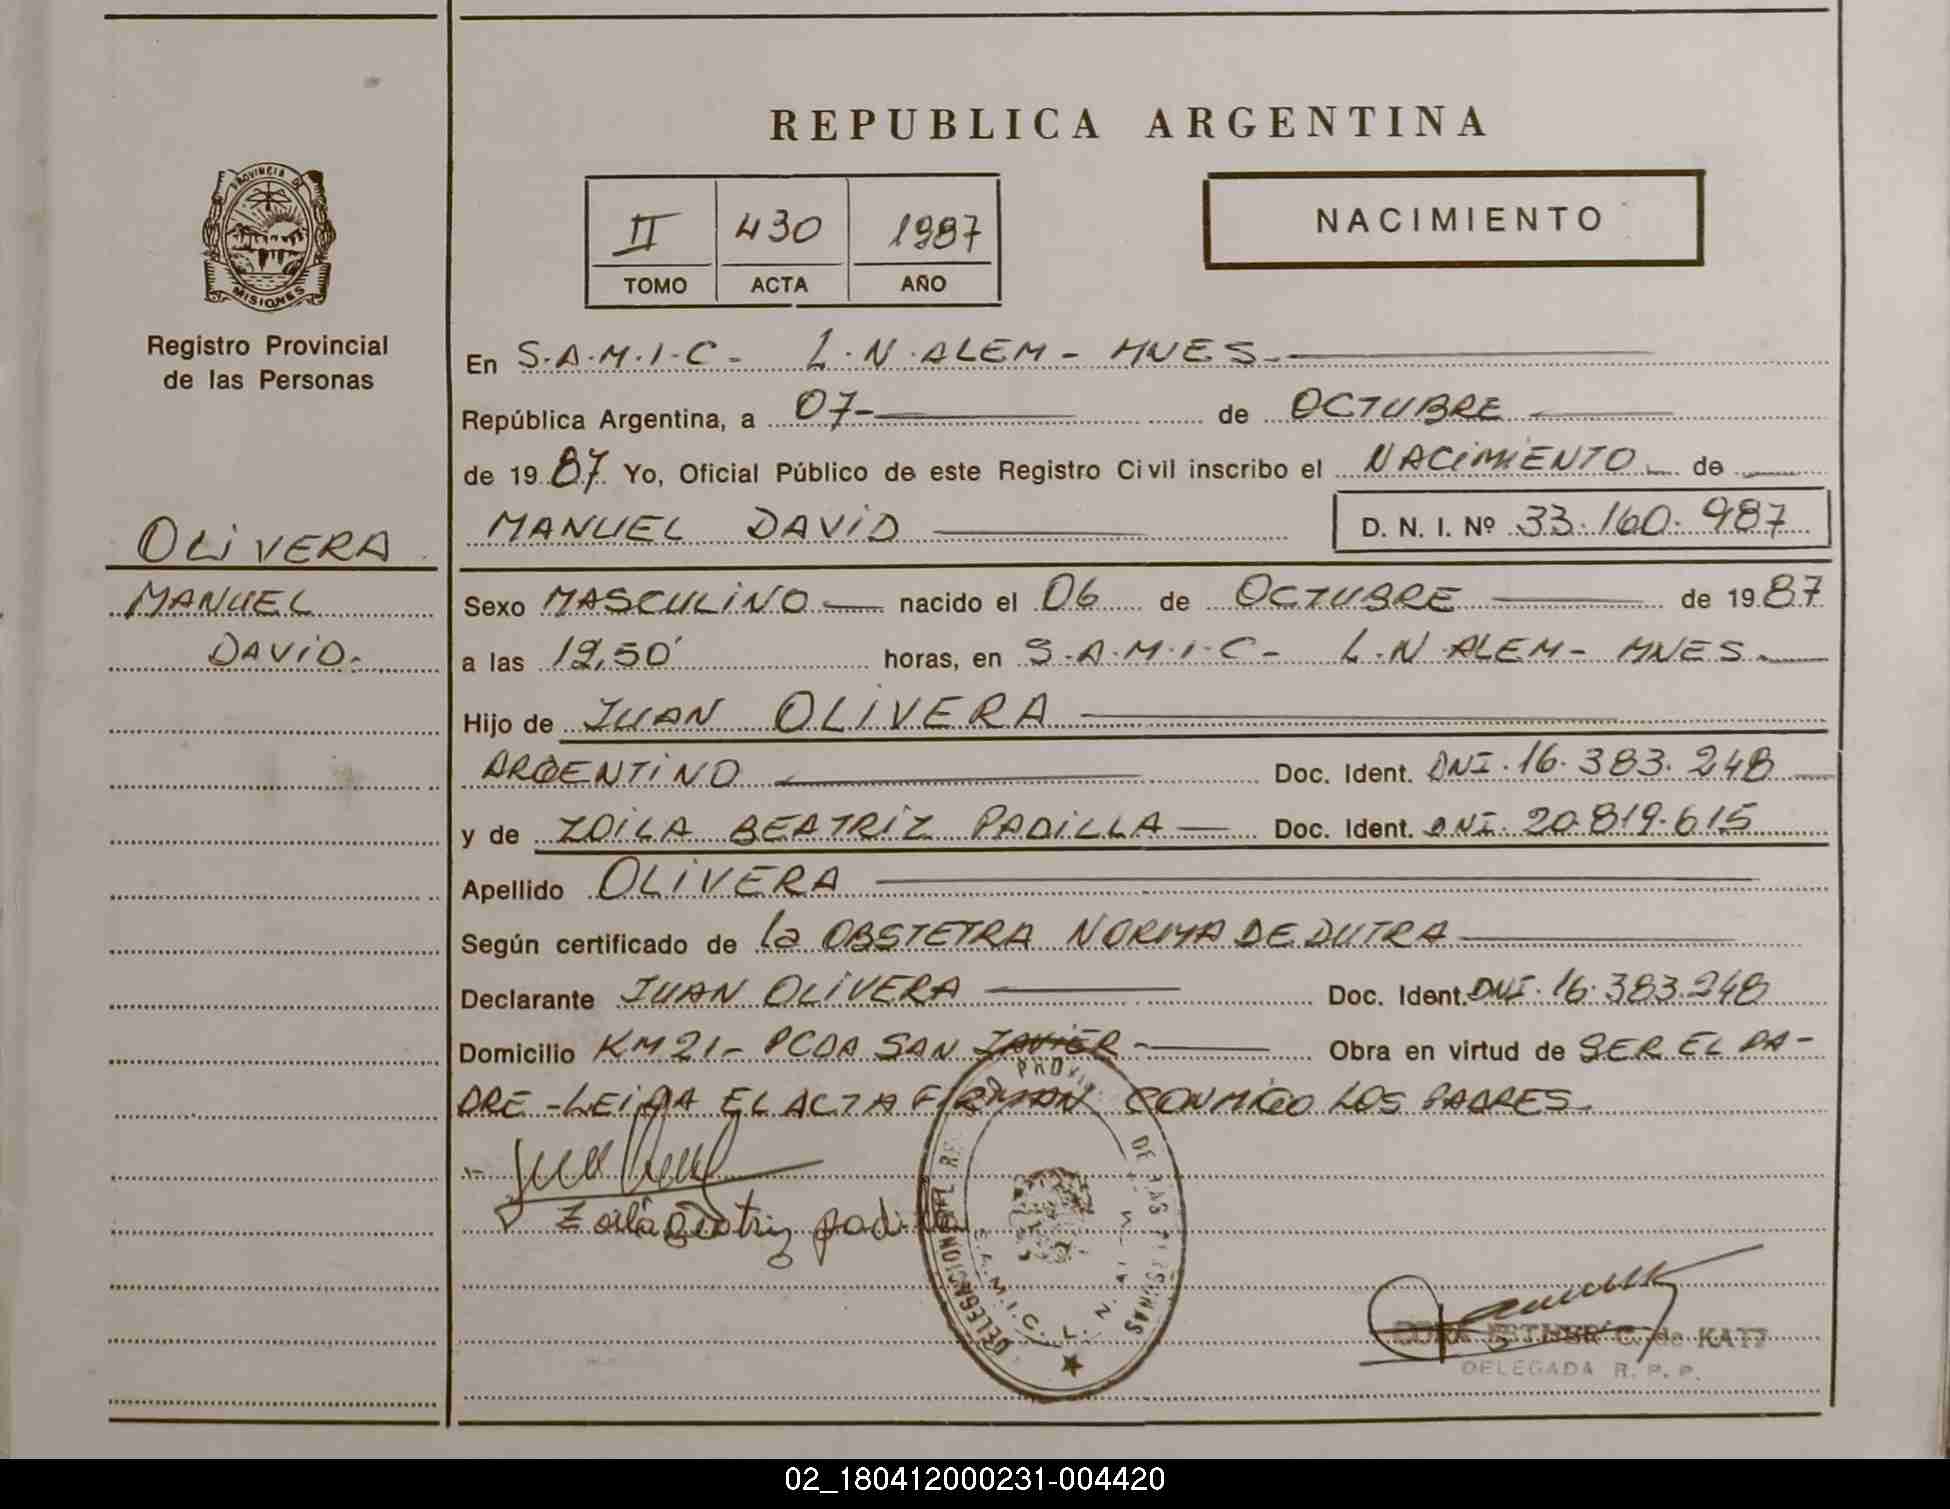 REPUBLICA ARGENTINA
PROVINCIA DE
MISIONES
Registro Provincial
de las Personas
II 430 1987
TOMO ACTA AÑO
NACIMIENTO
En S.A.M.I.C- L.N.ALEM - MNES.-
República Argentina, a 07- de OCTUBRE
de 19 87 Yo, Oficial Público de este Registro Civil inscribo el NACiMiENTO de
MANUEL DAViD D. N. I. Nº 33.160.987
OLiVERA
MANUEL
DAViD.-
Sexo MASCULiNO nacido el 06 de OCTUBRE de 19 87
a las 19,50' horas, en S.A.M.I.C- L.N ALEM- MNES.
Hijo de JUAN OLiVERA
ARGENTiNO Doc. Ident. DNI.16.383.248
y de ZOiLA BEATRiZ PADiLLA Doc. Ident. DNI. 20.819.615
Apellido OLiVERA
Según certificado de la OBSTETRA NORMA DE DUTRA
Declarante JUAN OLiVERA Doc. Ident. DNI.16.383.248
Domicilio KM 21- PCDA SAN JAViER- Obra en virtud de SER EL PA-
DRE -LEiDA EL ACTA FiRMAN CONMiGO LOS PADRES
Zoila Beatriz padilla
DELEGACION
S.A.M.I.C. L. N.
DE LAS PERSONAS
ESTHER C. de KATZ
DELEGADA R.P.P.
02_180412000231-004420